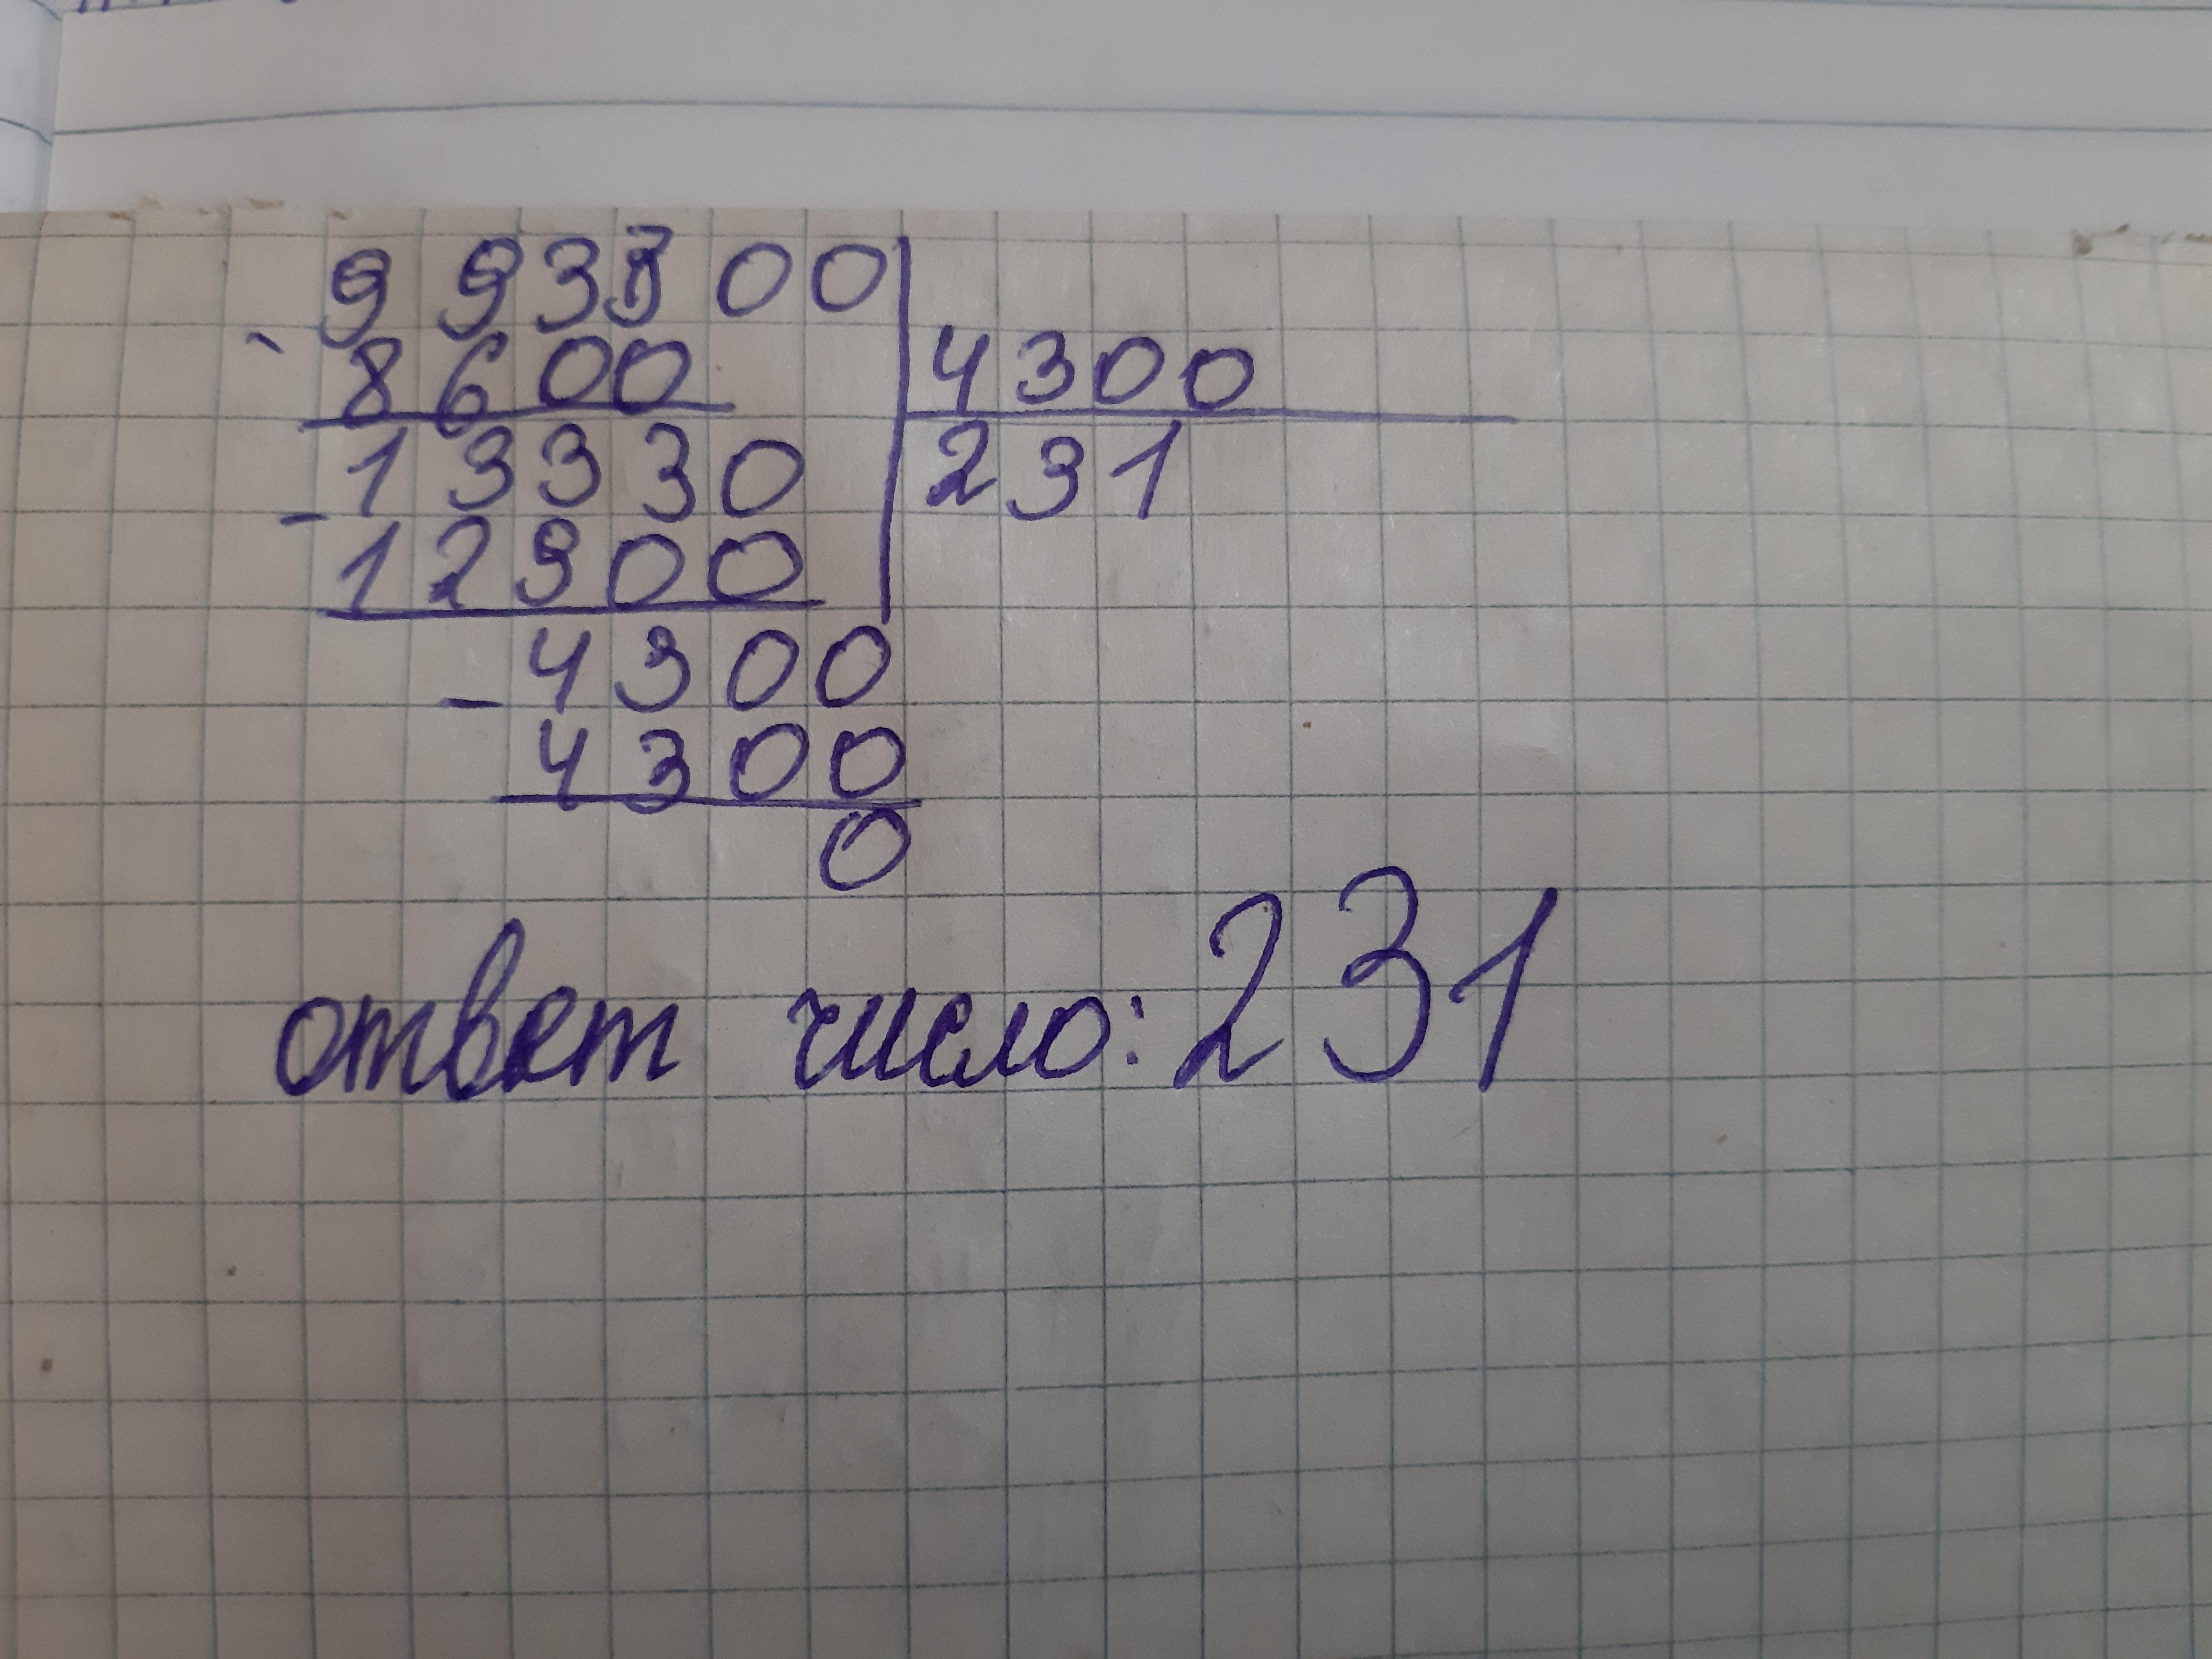 993300
- 8600 4300
- 13330 231
12900
- 4300
4300
0
ответ число: 231